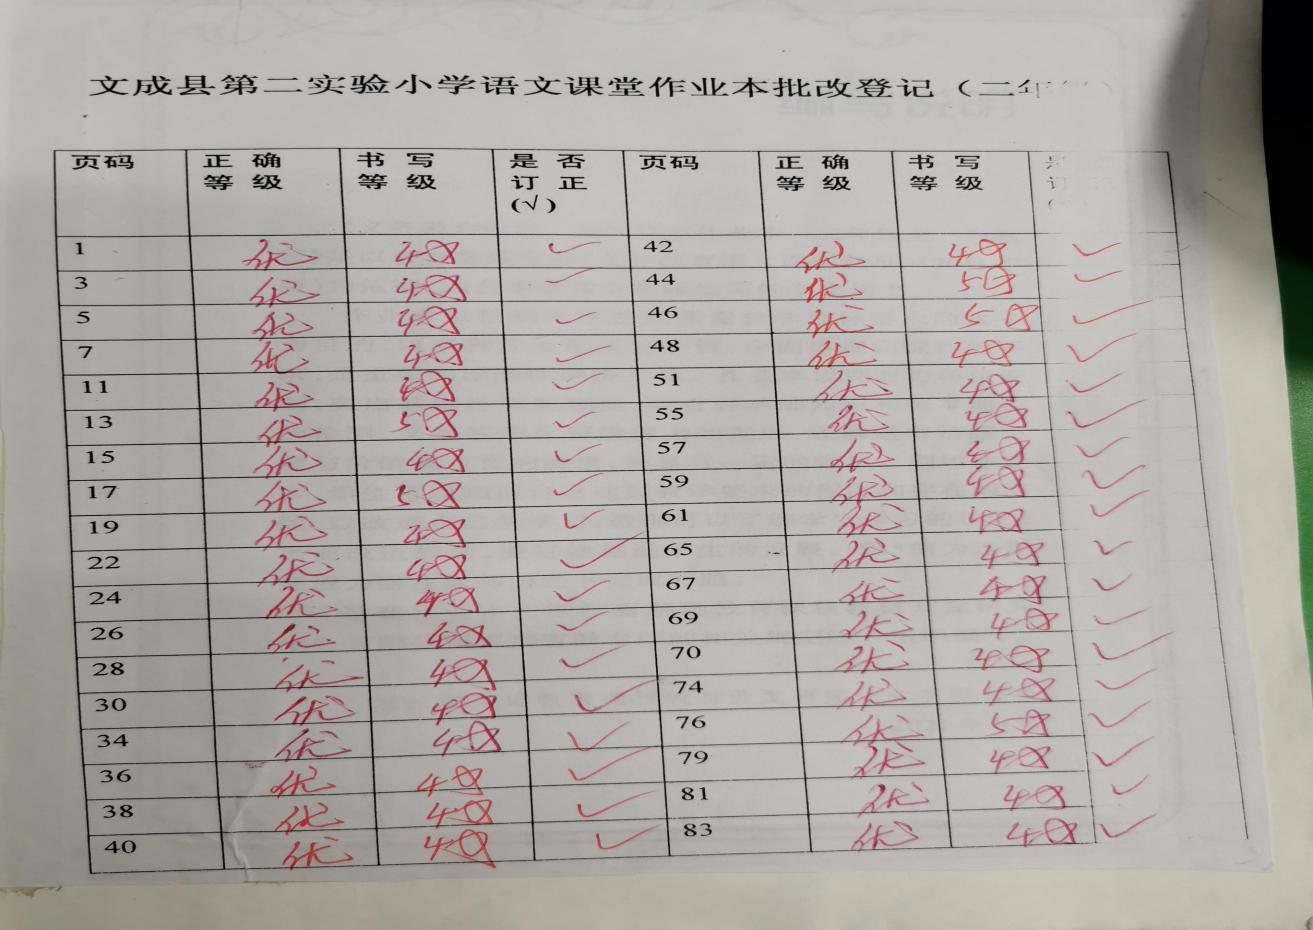 文成县第二实验小学语文课堂作业本批改登记（二年
页码 正确等级 书写等级 是否订正(√) 页码 正确等级 书写等级
1 优 4 ✓ 42 优 4 ✓
3 优 4 ✓ 44 优 5 ✓
5 优 4 ✓ 46 优 5 ✓
7 优 4 ✓ 48 优 4 ✓
11 优 4 ✓ 51 优 4 ✓
13 优 5 ✓ 55 优 4 ✓
15 优 4 ✓ 57 优 ✓
17 优 5 ✓ 59 优 4 ✓
19 优 ✓ 61 优 4 ✓
22 优 4 ✓ 65 优 4 ✓
24 优 4 ✓ 67 优 4 ✓
26 优 4 ✓ 69 优 4 ✓
28 优 4 ✓ 70 优 4 ✓
30 优 4 ✓ 74 优 4 ✓
34 优 4 ✓ 76 优 5 ✓
36 优 4 ✓ 79 优 4 ✓
38 优 4 ✓ 81 优 4 ✓
40 优 4 ✓ 83 优 4 ✓